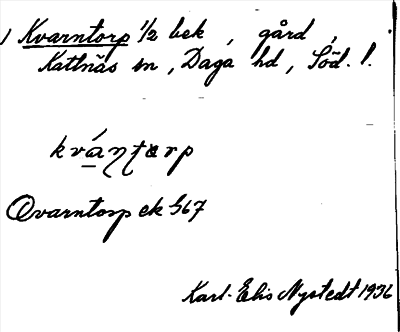 1 Kvarntorp 1/2 bek, gård,
Kattnäs sn, Daga hd, Söd. l.
kvá̱ɳʈɷrp
Qvarntorp ek 567
Karl-Elis Nystedt 1936